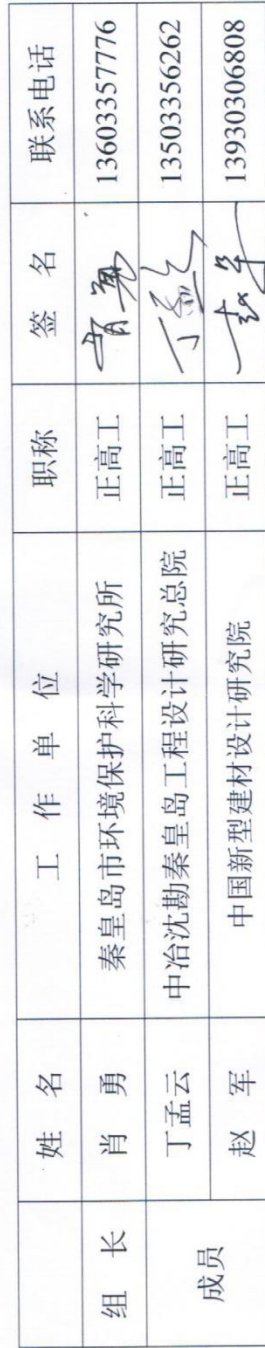 姓 名 工 作 单 位 职称 签 名 联系电话
组 长 肖 勇 秦皇岛市环境保护科学研究所 正高工 肖勇 13603357776
成员 丁孟云 中冶沈勘秦皇岛工程设计研究总院 正高工 丁孟云 13503356262
赵 军 中国新型建材设计研究院 正高工 赵军 13930306808